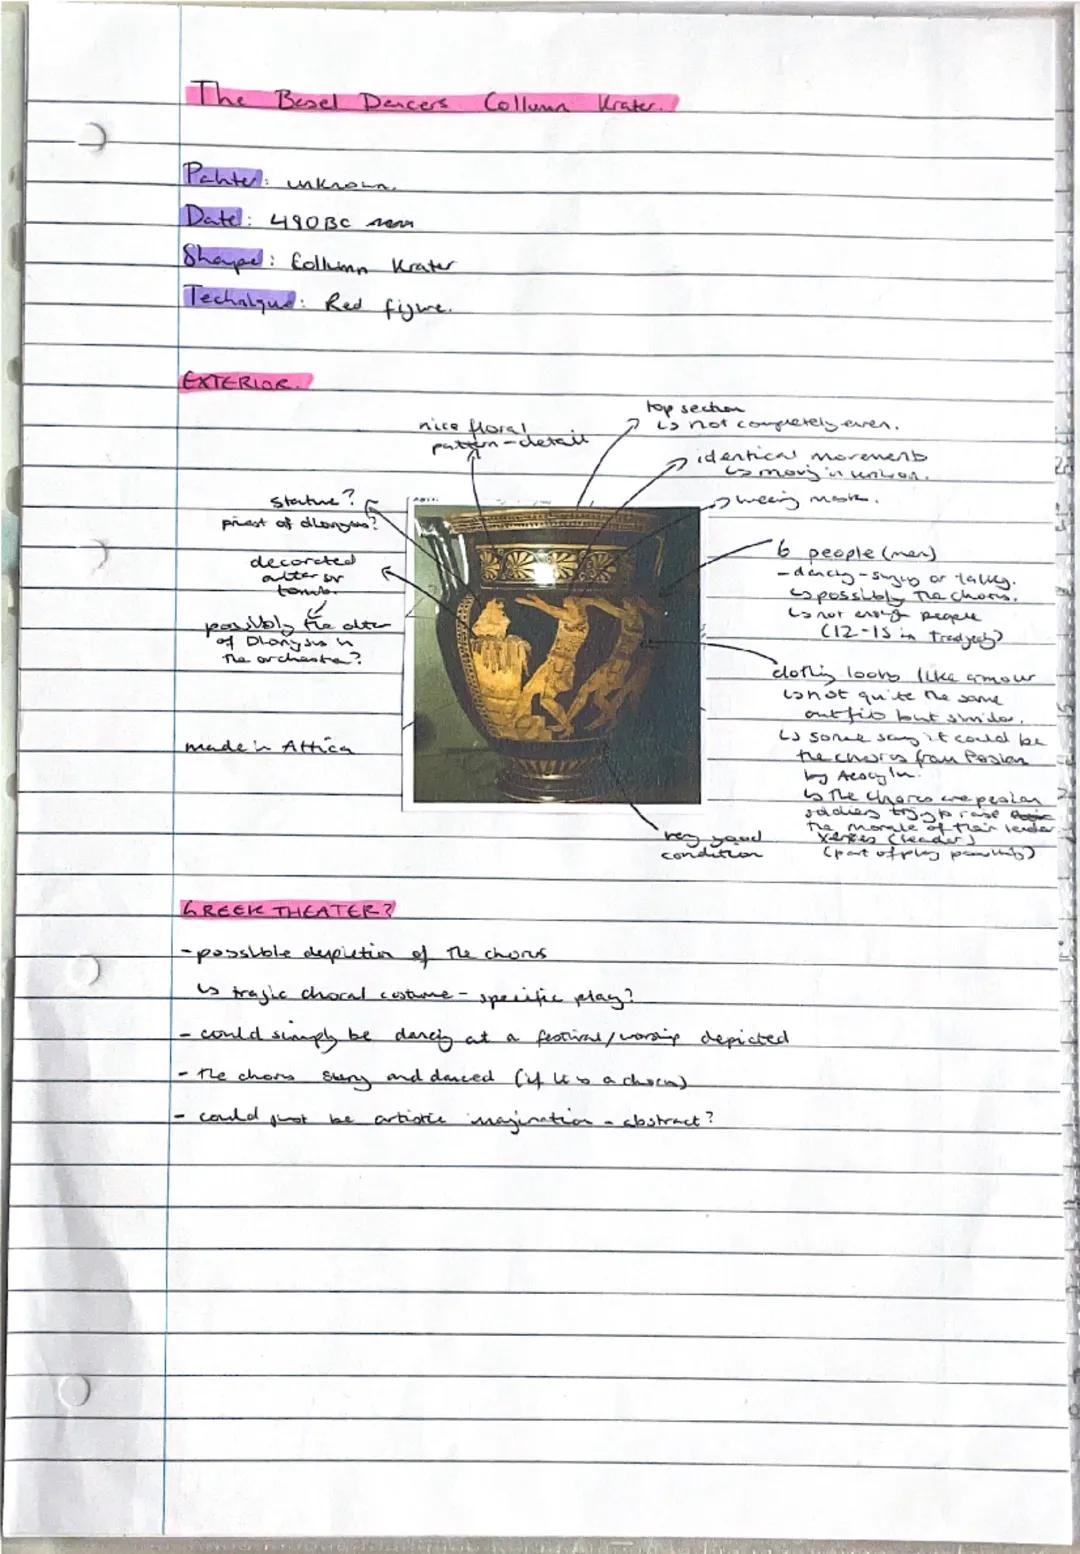 The Basel Dancers Collumn Krater.
Painter: unknown.
Date: 490BC
Shape: Collumn Krater
Technique: Red figure.
EXTERIOR.
top section
↳ is not completely even.
nice floral
pattern - detail
identical movements
↳ moving in unison.
wearing mask.
statue?
priest of dionysus?
decorated
alter or
tomb.
possibly the alter
of Dionysus in
the orchestra?
made in Attica
6 people (men)
- dancing - singing or talking.
↳ possibly the chorus.
↳ not enough people
(12-15 in tradgedy)
clothing looks like armour
↳ not quite the same
outfits but similar.
↳ some say it could be
the chorus from Persian
by
↳ the chorus are persian
soldiers trying to raise
the morale of their leader
Xerxes (leader)
(part of play possibly)
very good
condition
GREEK THEATER?
- possible depiction of the chorus
↳ tragic choral costume - specific play?
- could simply be dancing at a festival/worship depicted
- the chorus sung and danced (if it is a chorus)
- could just be artistic imagination - abstract?